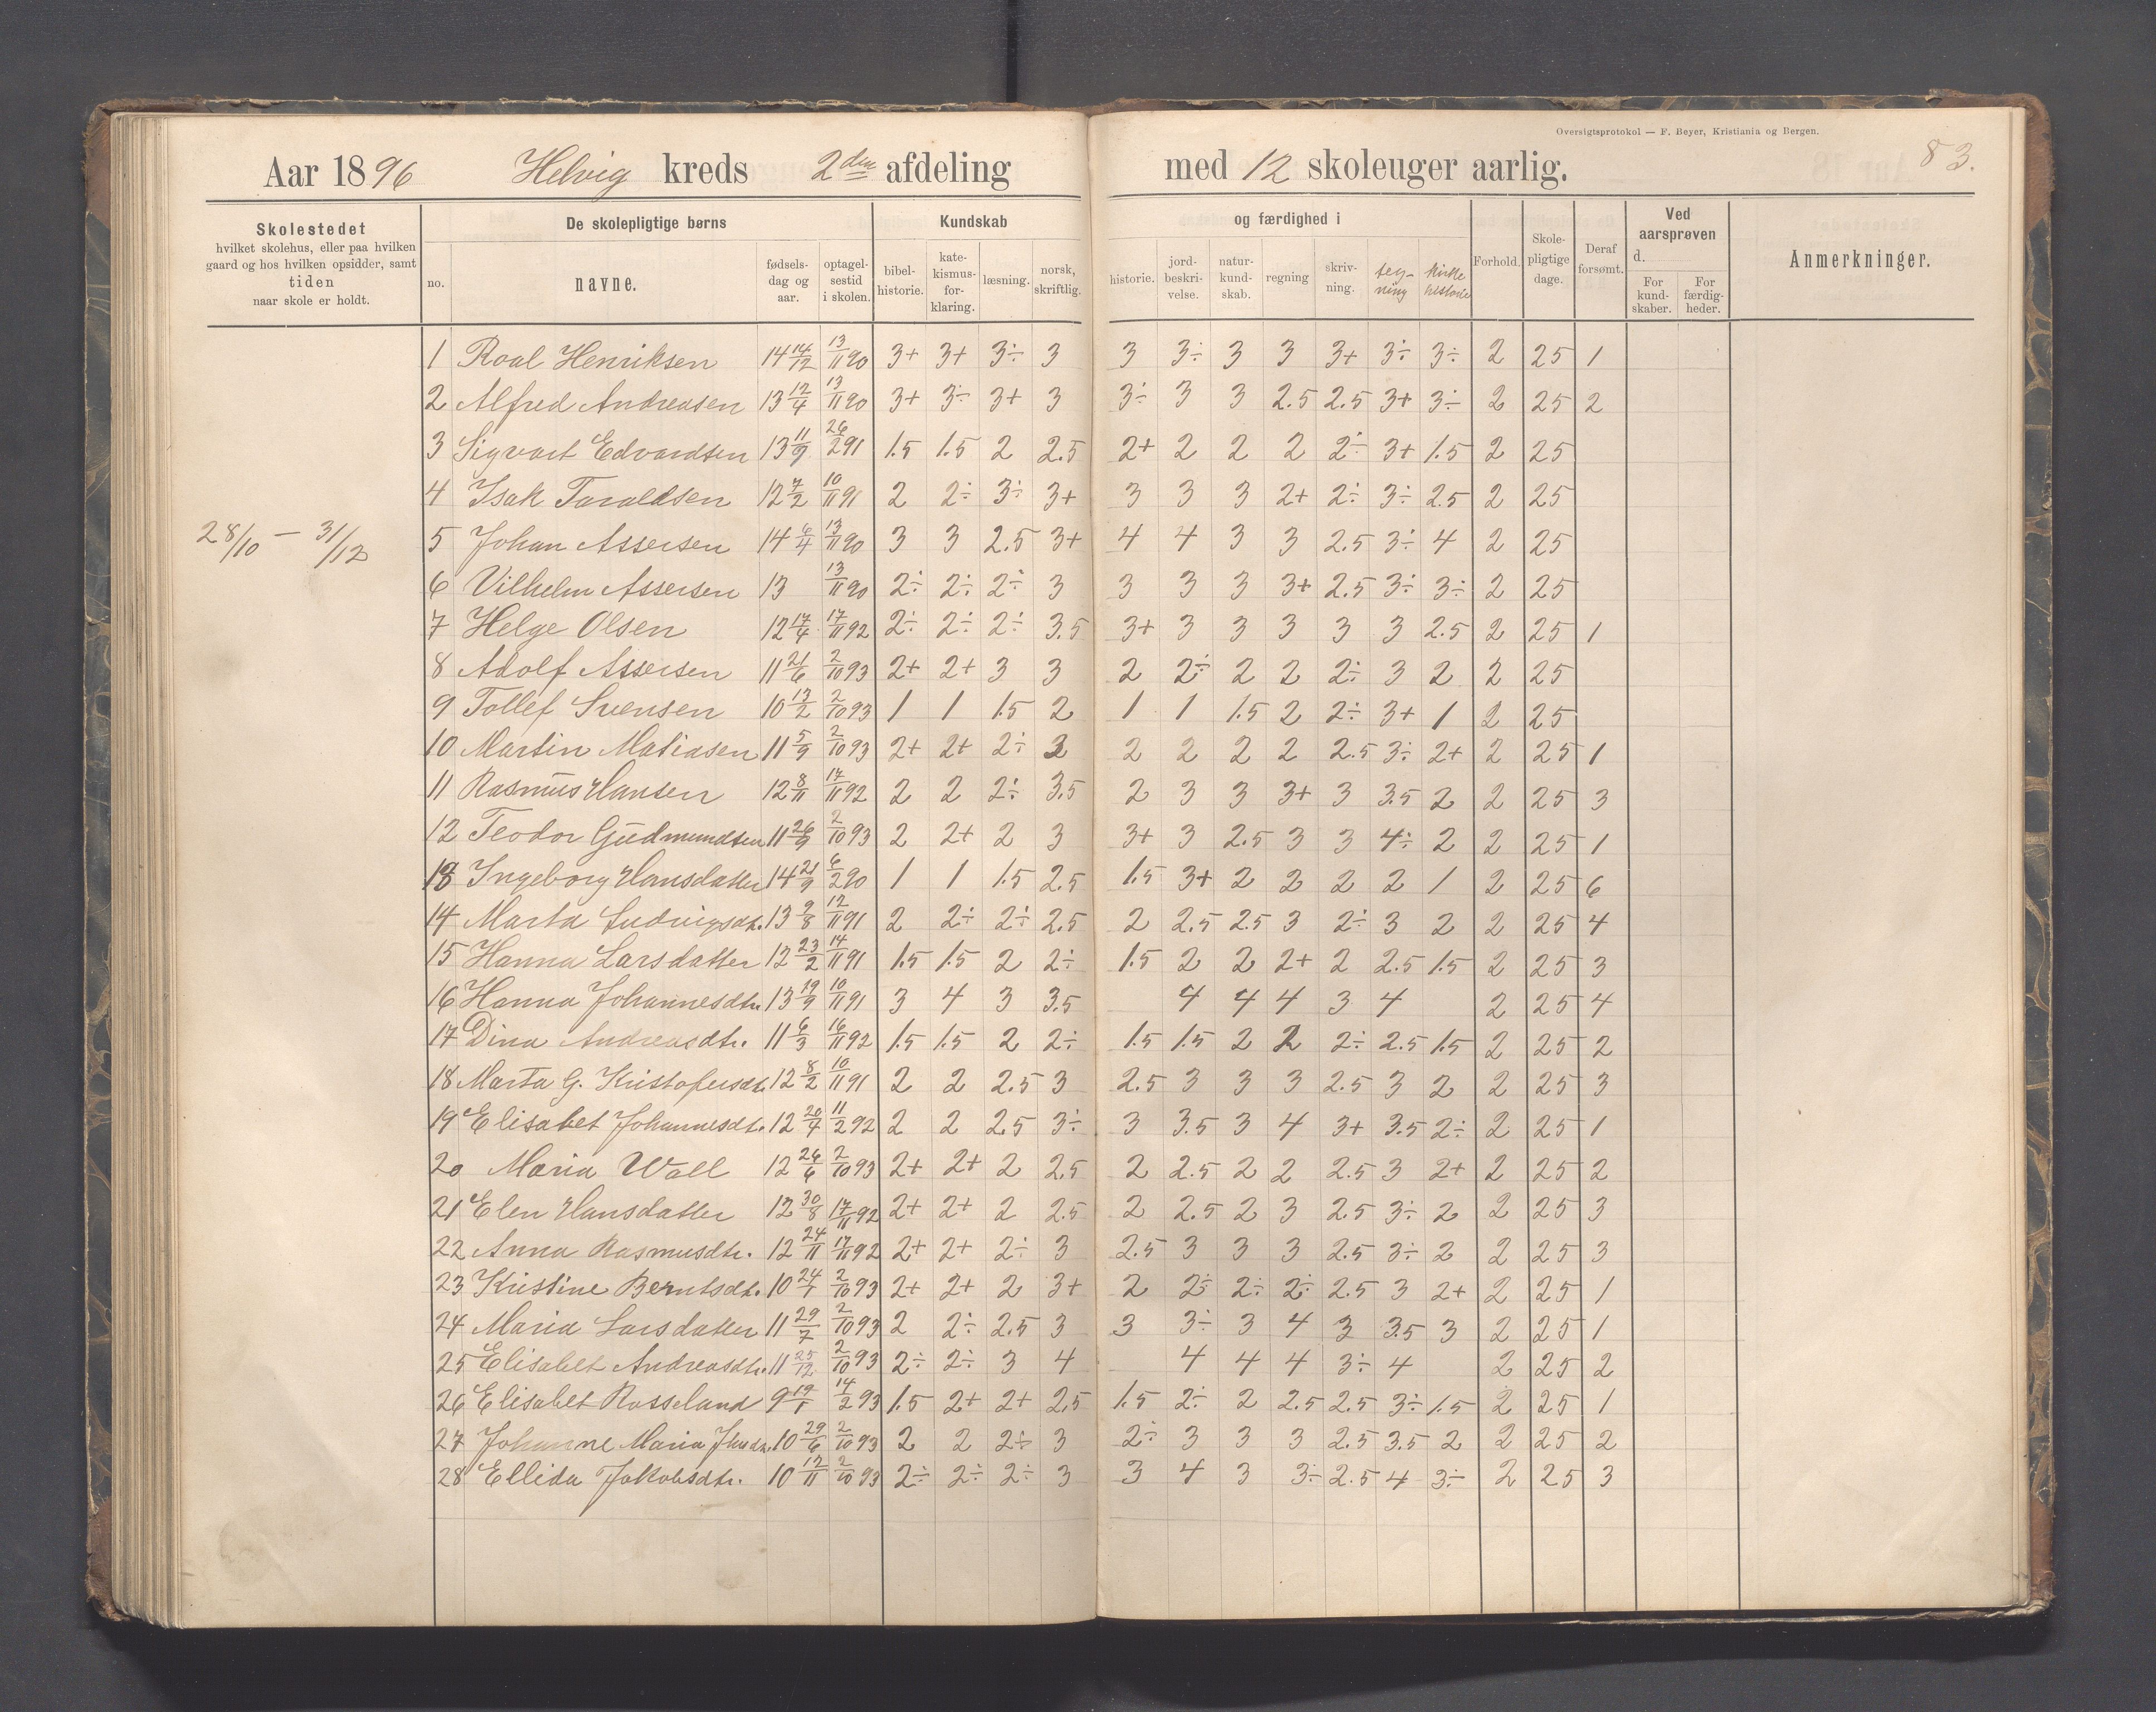 Oversigtsprotokol — F. Beyer, Kristiania og Bergen.
83.
Aar 1896 Helvig kreds 2den afdeling med 12 skoleuger aarlig.
Skolestedet hvilket skolehus, eller paa hvilken gaard og hos hvilken opsidder, samt tiden naar skole er holdt.
De skolepligtige børns
Kundskab og færdighed i
no. navne. fødsels-dag og aar. optagel-sestid i skolen. bibel-historie. kate-kismus-for-klaring. læsning. norsk, skriftlig. historie. jord-beskri-velse. natur-kund-skab. regning skriv-ning. teg-ning kirke historie Forhold. Skole-pligtige dage. Deraf forsømt. Ved aarsprøven d. For kund-skaber. For færdig-heder. Anmerkninger.
28/10 — 31/12
1 Roal Henriksen 14 14/12 13/11 90 3+ 3+ 3÷ 3 3 3÷ 3 3 3+ 3÷ 3÷ 2 25 1
2 Alfred Andreasen 13 12/4 13/11 90 3+ 3÷ 3+ 3 3÷ 3 3 2.5 2.5 3+ 3÷ 2 25 2
3 Sigvart Edvardsen 13 11/9 26/2 91 1.5 1.5 2 2.5 2+ 2 2 2 2÷ 3+ 1.5 2 25
4 Isak Taraldsen 12 7/2 10/11 91 2 2÷ 3÷ 3+ 3 3 3 2+ 2÷ 3÷ 2.5 2 25
5 Johan Assersen 14 6/4 13/11 90 3 3 2.5 3+ 4 4 3 3 2.5 3÷ 4 2 25
6 Vilhelm Assersen 13 13/11 90 2÷ 2÷ 2÷ 3 3 3 3 3+ 2.5 3÷ 3÷ 2 25
7 Helge Olsen 12 17/4 17/11 92 2÷ 2÷ 2÷ 3.5 3+ 3 3 3 3 3 2.5 2 25 1
8 Adolf Assersen 11 21/6 2/10 93 2+ 2+ 3 3 2 2÷ 2 2 2÷ 3 2 2 25
9 Tollef Svensen 10 13/2 2/10 93 1 1 1.5 2 1 1 1.5 2 2÷ 3+ 1 2 25
10 Martin Matiasen 11 5/9 2/10 93 2+ 2+ 2÷ 3 2 2 2 2 2.5 3÷ 2+ 2 25 1
11 Rasmus Hansen 12 8/11 17/11 92 2 2 2÷ 3.5 2 3 3 3+ 3 3.5 2 2 25 3
12 Teodor Gudmundsen 11 26/9 2/10 93 2 2+ 2 3 3+ 3 2.5 3 3 4÷ 2 2 25 1
13 Ingeborg Hansdatter 14 21/9 6/2 90 1 1 1.5 2.5 1.5 3+ 2 2 2 2 1 2 25 6
14 Marta Ludvigsdt. 13 9/8 12/11 91 2 2÷ 2÷ 2.5 2 2.5 2.5 3 2÷ 3 2 2 25 4
15 Hanna Larsdatter 12 23/2 14/11 91 1.5 1.5 2 2÷ 1.5 2 2 2+ 2 2.5 1.5 2 25 3
16 Hanna Johannesdtr. 13 19/9 10/11 91 3 4 3 3.5 4 4 4 3 4 2 25 4
17 Dina Andreasdtr. 11 6/3 16/11 92 1.5 1.5 2 2÷ 1.5 1.5 2 2 2÷ 2.5 1.5 2 25 2
18 Marta G. Kristofersdt. 12 8/2 10/11 91 2 2 2.5 3 2.5 3 3 3 2.5 3 2 2 25 3
19 Elisabet Johannesdt. 12 20/4 11/2 92 2 2 2.5 3÷ 3 3.5 3 4 3+ 3.5 2÷ 2 25 1
20 Maria Wall 12 26/6 2/10 93 2+ 2+ 2 2.5 2 2.5 2 2 2.5 3 2+ 2 25 2
21 Elen Hansdatter 12 30/8 17/11 92 2+ 2+ 2 2.5 2 2.5 2 3 2.5 3÷ 2 2 25 3
22 Anna Rasmusdtr. 12 24/11 17/11 92 2+ 2+ 2÷ 3 2.5 3 3 3 2.5 3÷ 2 2 25 3
23 Kristine Berntsdt. 10 24/1 2/10 93 2+ 2+ 2 3+ 2 2÷ 2÷ 2÷ 2.5 3 2+ 2 25 1
24 Maria Larsdatter 11 29/7 2/10 93 2 2÷ 2.5 3 3 3÷ 3 4 3 3.5 3 2 25 1
25 Elisabet Andreasdtr. 11 25/12 2/10 93 2÷ 2÷ 3 4 4 4 4 3÷ 4 2 25 2
26 Elisabet Rosseland 9 19/1 14/2 93 1.5 2+ 2+ 2.5 1.5 2÷ 2 2.5 2.5 3÷ 1.5 2 25 1
27 Johanne Maria 10 29/6 2/10 93 2 2 2÷ 3 2÷ 3 3 3 2.5 3.5 2 2 25 2
28 Ellida Jakobsdtr. 10 12/11 2/10 93 2÷ 2÷ 2÷ 3 3 4 3 3÷ 2.5 4 3÷ 2 25 3